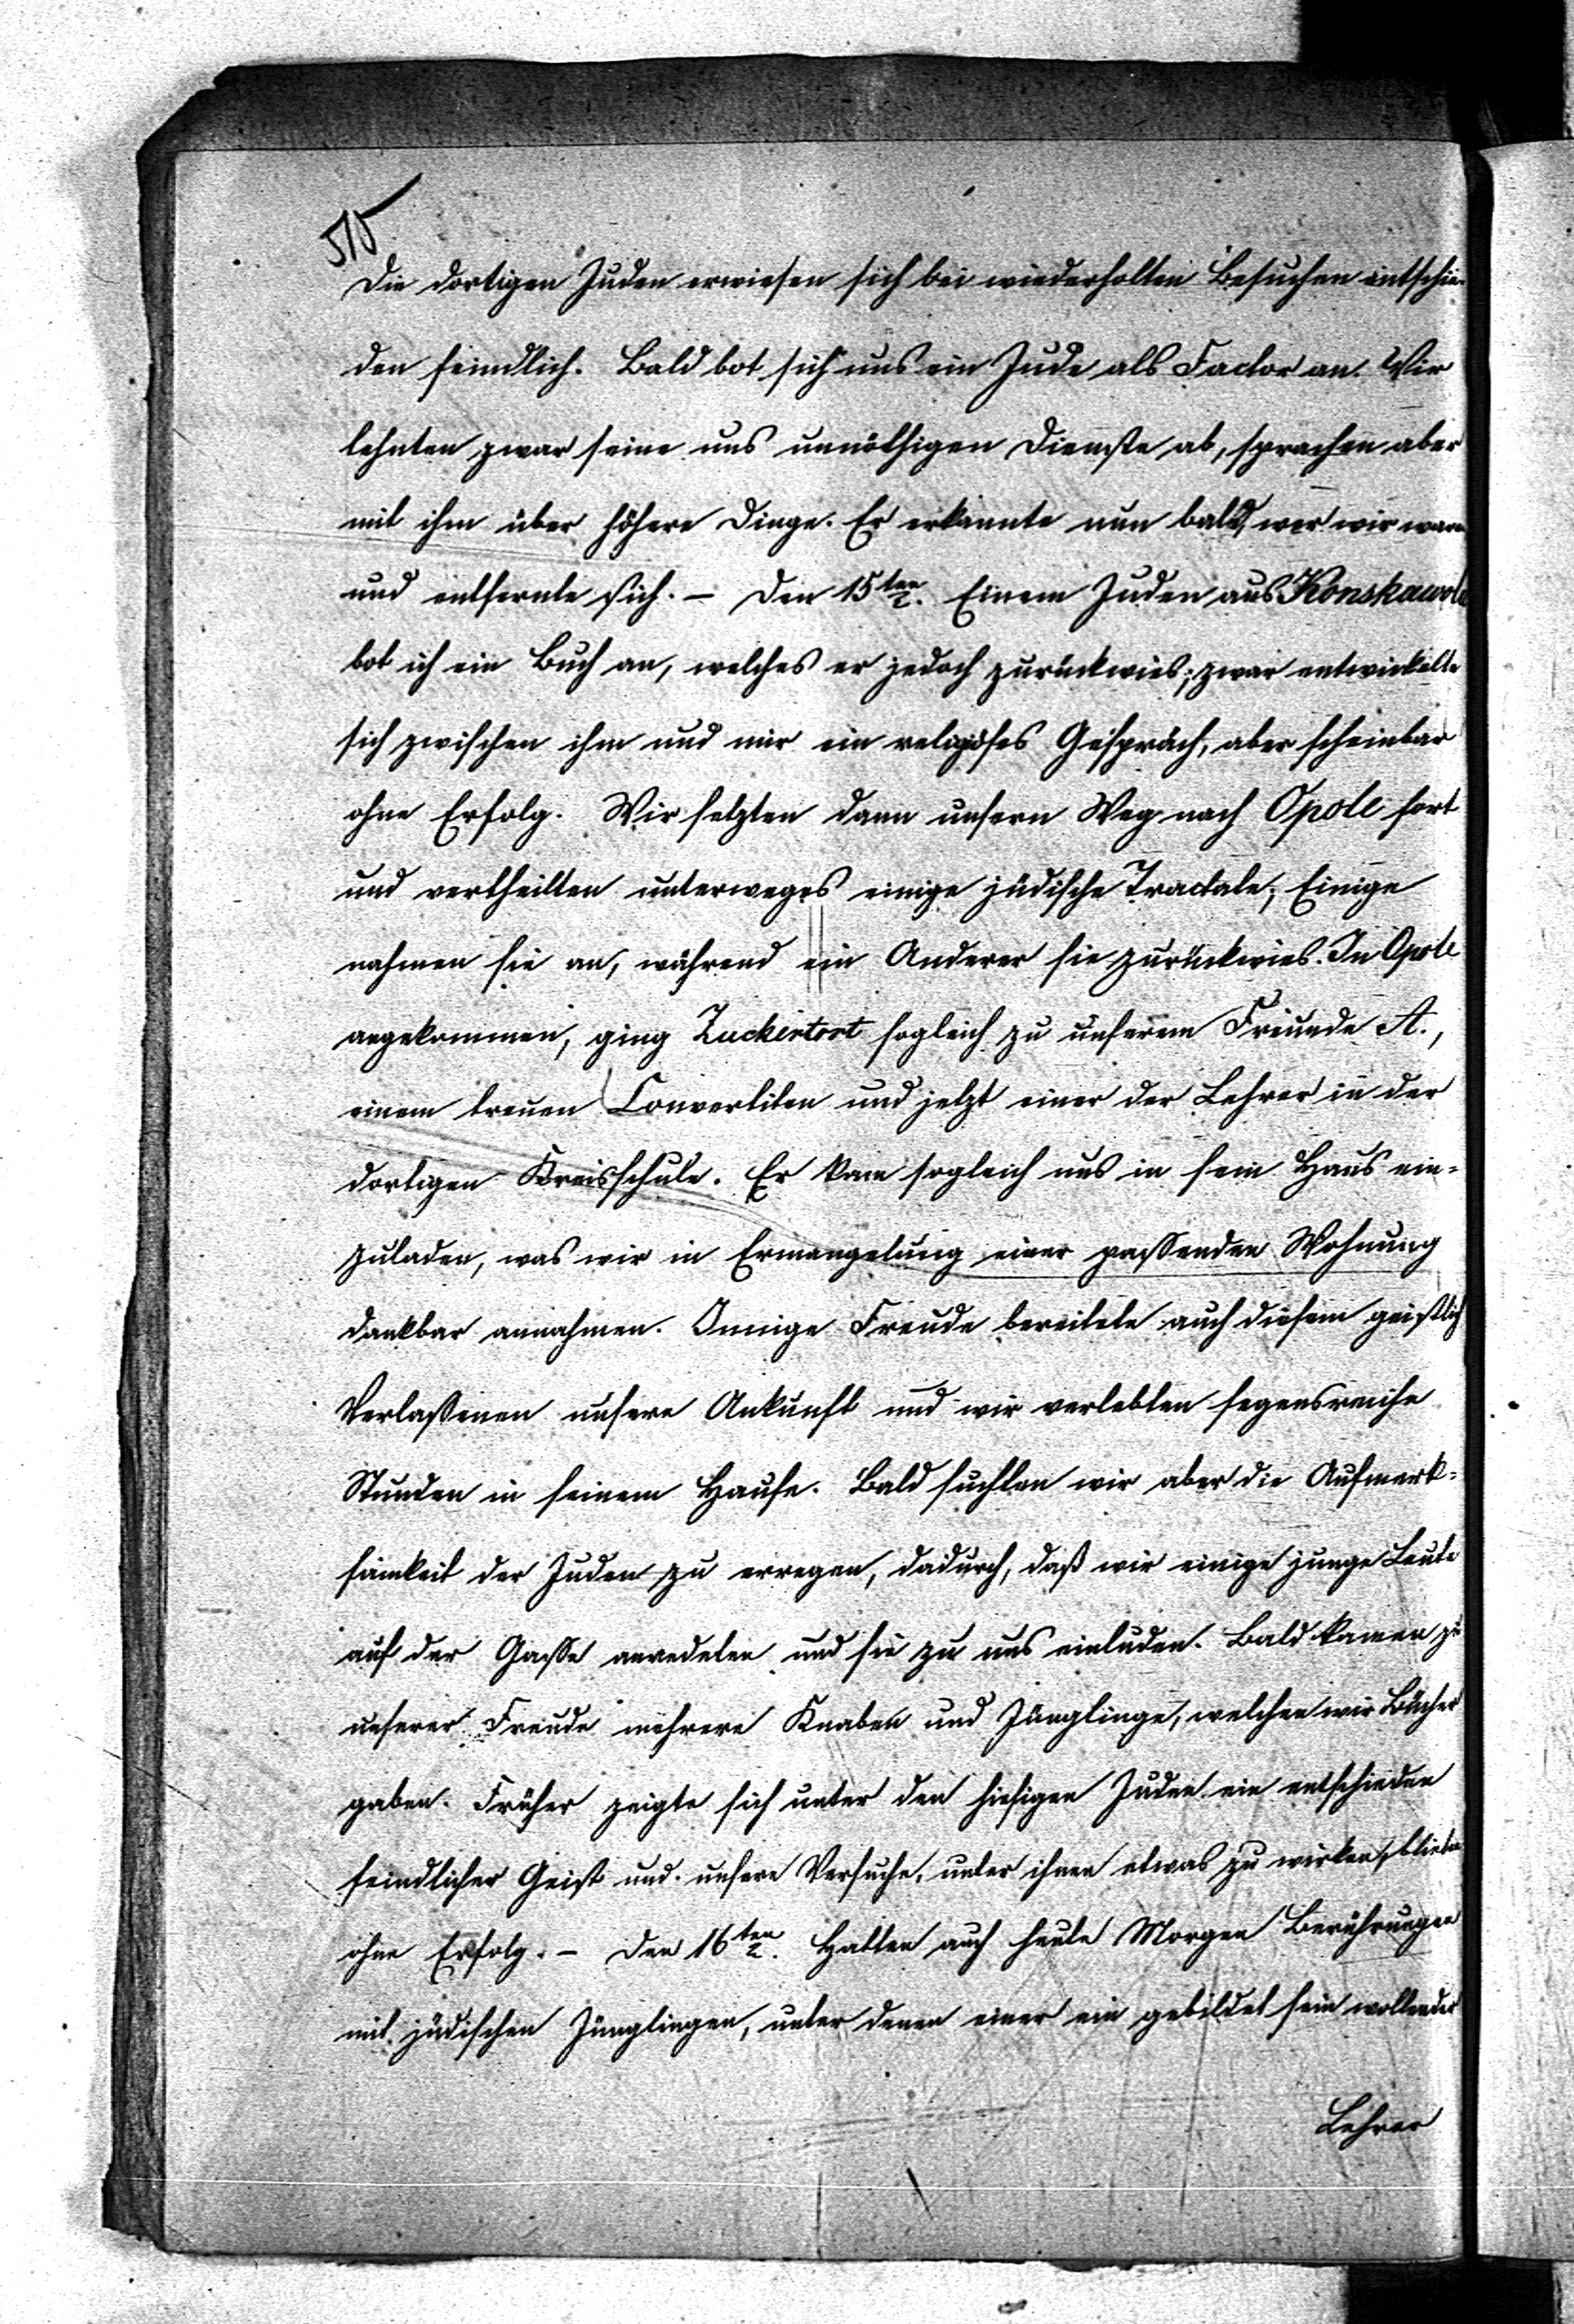 515
Die dortigen Juden erwiesen sich bei wiederholten Besuchen entschie-
den feindlich. Bald bot sich uns ein Jude als Factor an. Wir
lehnten zwar seine uns unnöthigen Dienste ab, sprachen aber
mit ihm über höhere Dinge. Er erkannte nun bald, wer wir waren
und entfernte sich. – Den 15ten/2. Einem Juden aus Konskawola
bot ich ein Buch an, welches er jedoch zurückwies; zwar entwickelte
sich zwischen ihm und mir ein religiöses Gespräch, aber scheinbar
ohne Erfolg. Wir setzten dann unsern Weg nach Opole fort
und vertheilten unterweges einige jüdische Tractate; Einige
nahmen sie an, während ein Anderer sie zurückwies. In Opole
angekommen, ging Zuckertort sogleich zu unserem Freunde A.,
einem treuen Convertiten und jetzt einer der Lehrer in der
dortigen Kreisschule. Er kam sogleich uns in sein Haus ein-
zuladen, was wir in Ermangelung einer passenden Wohnung
dankbar annahmen. Innige Freude bereitete auch diesem geistlich
Verlaßenen unsere Ankunft und wir verlebten segensreiche
Stunden in seinem Hause. Bald suchten wir aber die Aufmerk-
samkeit der Juden zu erregen, dadurch, daß wir einige junge Leute
auf der Gasse anredeten und sie zu uns einluden. Bald kamen zu
unserer Freude mehrere Knaben und Jünglinge, welchen wir Bücher
gaben. Früher zeigte sich unter den hiesigen Juden ein entschieden
feindlicher Geist und unsere Versuche, unter ihnen etwas zu wirken, blieben
ohne Erfolg. – Den 16ten/2. Hatten auch heute Morgen Berührungen
mit jüdischen Jünglingen, unter denen einer ein gebildet sein wollender
Lehrer